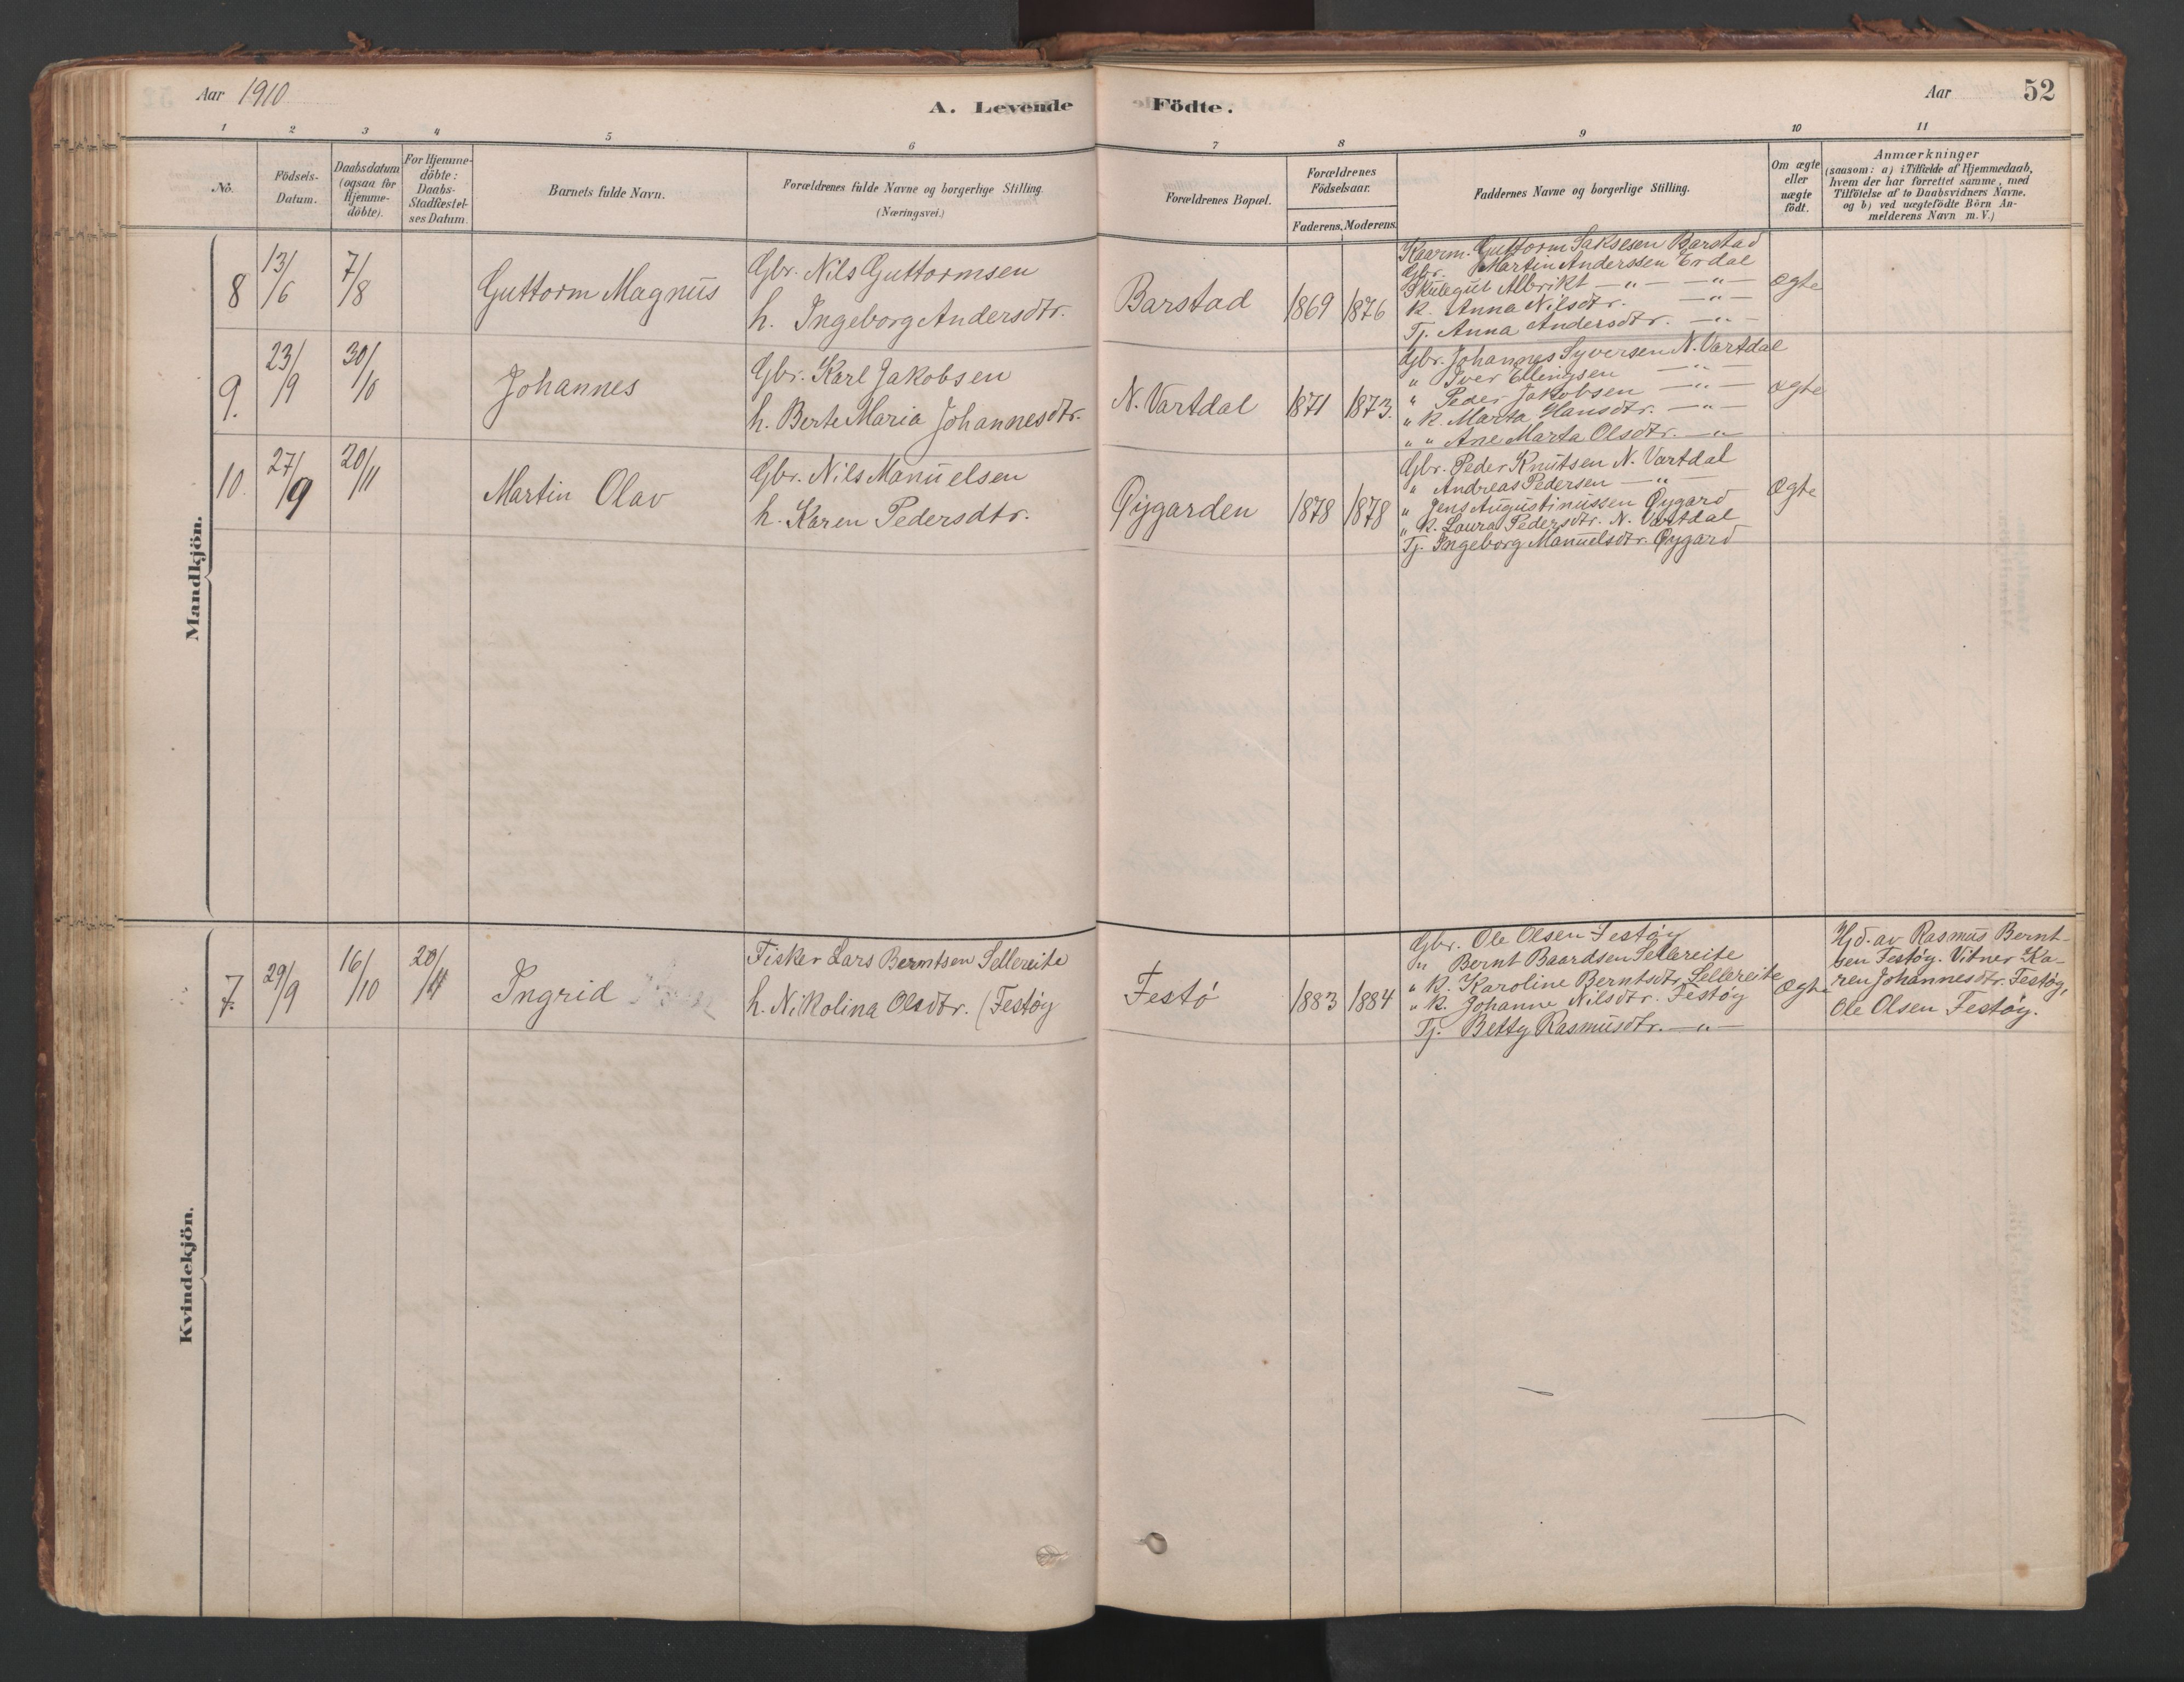 Aar 1910
A. Levende
Födte.
Aar
52
1 2 3 4 5 6 7 8 9 10 11
No.
Födsels-
Datum.
Daabsdatum
(ogsaa for
Hjemme-
döbte).
For Hjemme-
döbte:
Daabs-
Stadfæstel-
ses Datum.
Barnets fulde Navn.
Forældrenes fulde Navne og borgerlige Stilling.
(Næringsvei.)
Forældrenes Bopæl.
Forældrenes
Födselsaar.
Faderens. Moderens.
Faddernes Navne og borgerlige Stilling.
Om ægte
eller
uægte
födt.
Anmærkninger
(saasom: a) i Tilfælde af Hjemmedaab,
hvem der har forrettet samme, med
Tilföielse af to Daabsvidners Navne.
og b) ved uægtefödte Börn An-
melderens Navn m. V.)
Mandkjön.
8
13/6
7/8
Guttorm Magnus
Gbr. Nils Guttormsen
h. Ingeborg Andersdtr.
Barstad
1869
1876
Kaarm. Guttorm Saksesen Barstad
Gbr. Martin Anderssen Erdal
Skulegut Albrikt — " — — " —
K. Anna Nilsdtr. — " —
Tj. Anna Andersdtr. — " —
Ægte
9.
23/9
30/10
Johannes
Gbr. Karl Jakobsen
h. Berte Maria Johannesdtr.
N. Vartdal
1871
1873.
Gbr. Johannes Syversen N. Vartdal
" Iver Ellingsen — " —
" Peder Jakobsen — " —
" K. Marta Hansdtr. — " —
" " Ane Marta Olsdtr. — "
Ægte
10.
27/9
20/11
Martin Olav
Gbr. Nils Manuelsen
h. Karen Pedersdtr.
Øygarden
1878
1878
Gbr. Peder Knutsen N. Vartdal
" Andreas Pedersen — " —
" Jens Augustinussen Øygard
" K. Laura Pedersdtr. N. Vartdal
Tj. Ingeborg Manuelsdtr. Øygard
Ægte
Kvindekjön.
7.
29/9
16/10
20/11
Ingrid
Fisker Lars Berntsen Sellereite
h. Nikolina Olsdtr. (Festøy
Festö
1883
1884
Gbr. Ole Olsen Festøy
" Bernt Baardsen Sellereite
" K. Karoline Berntsdtr. Sellereite
" K. Johanne Nilsdtr. Festøy
Tj. Betty Rasmusdtr. — " —
Ægte
Hjd. av Rasmus Bernt-
sen Festøy. Vitner Ka-
ren Johannesdtr. Festøy,
Ole Olsen Festøy.